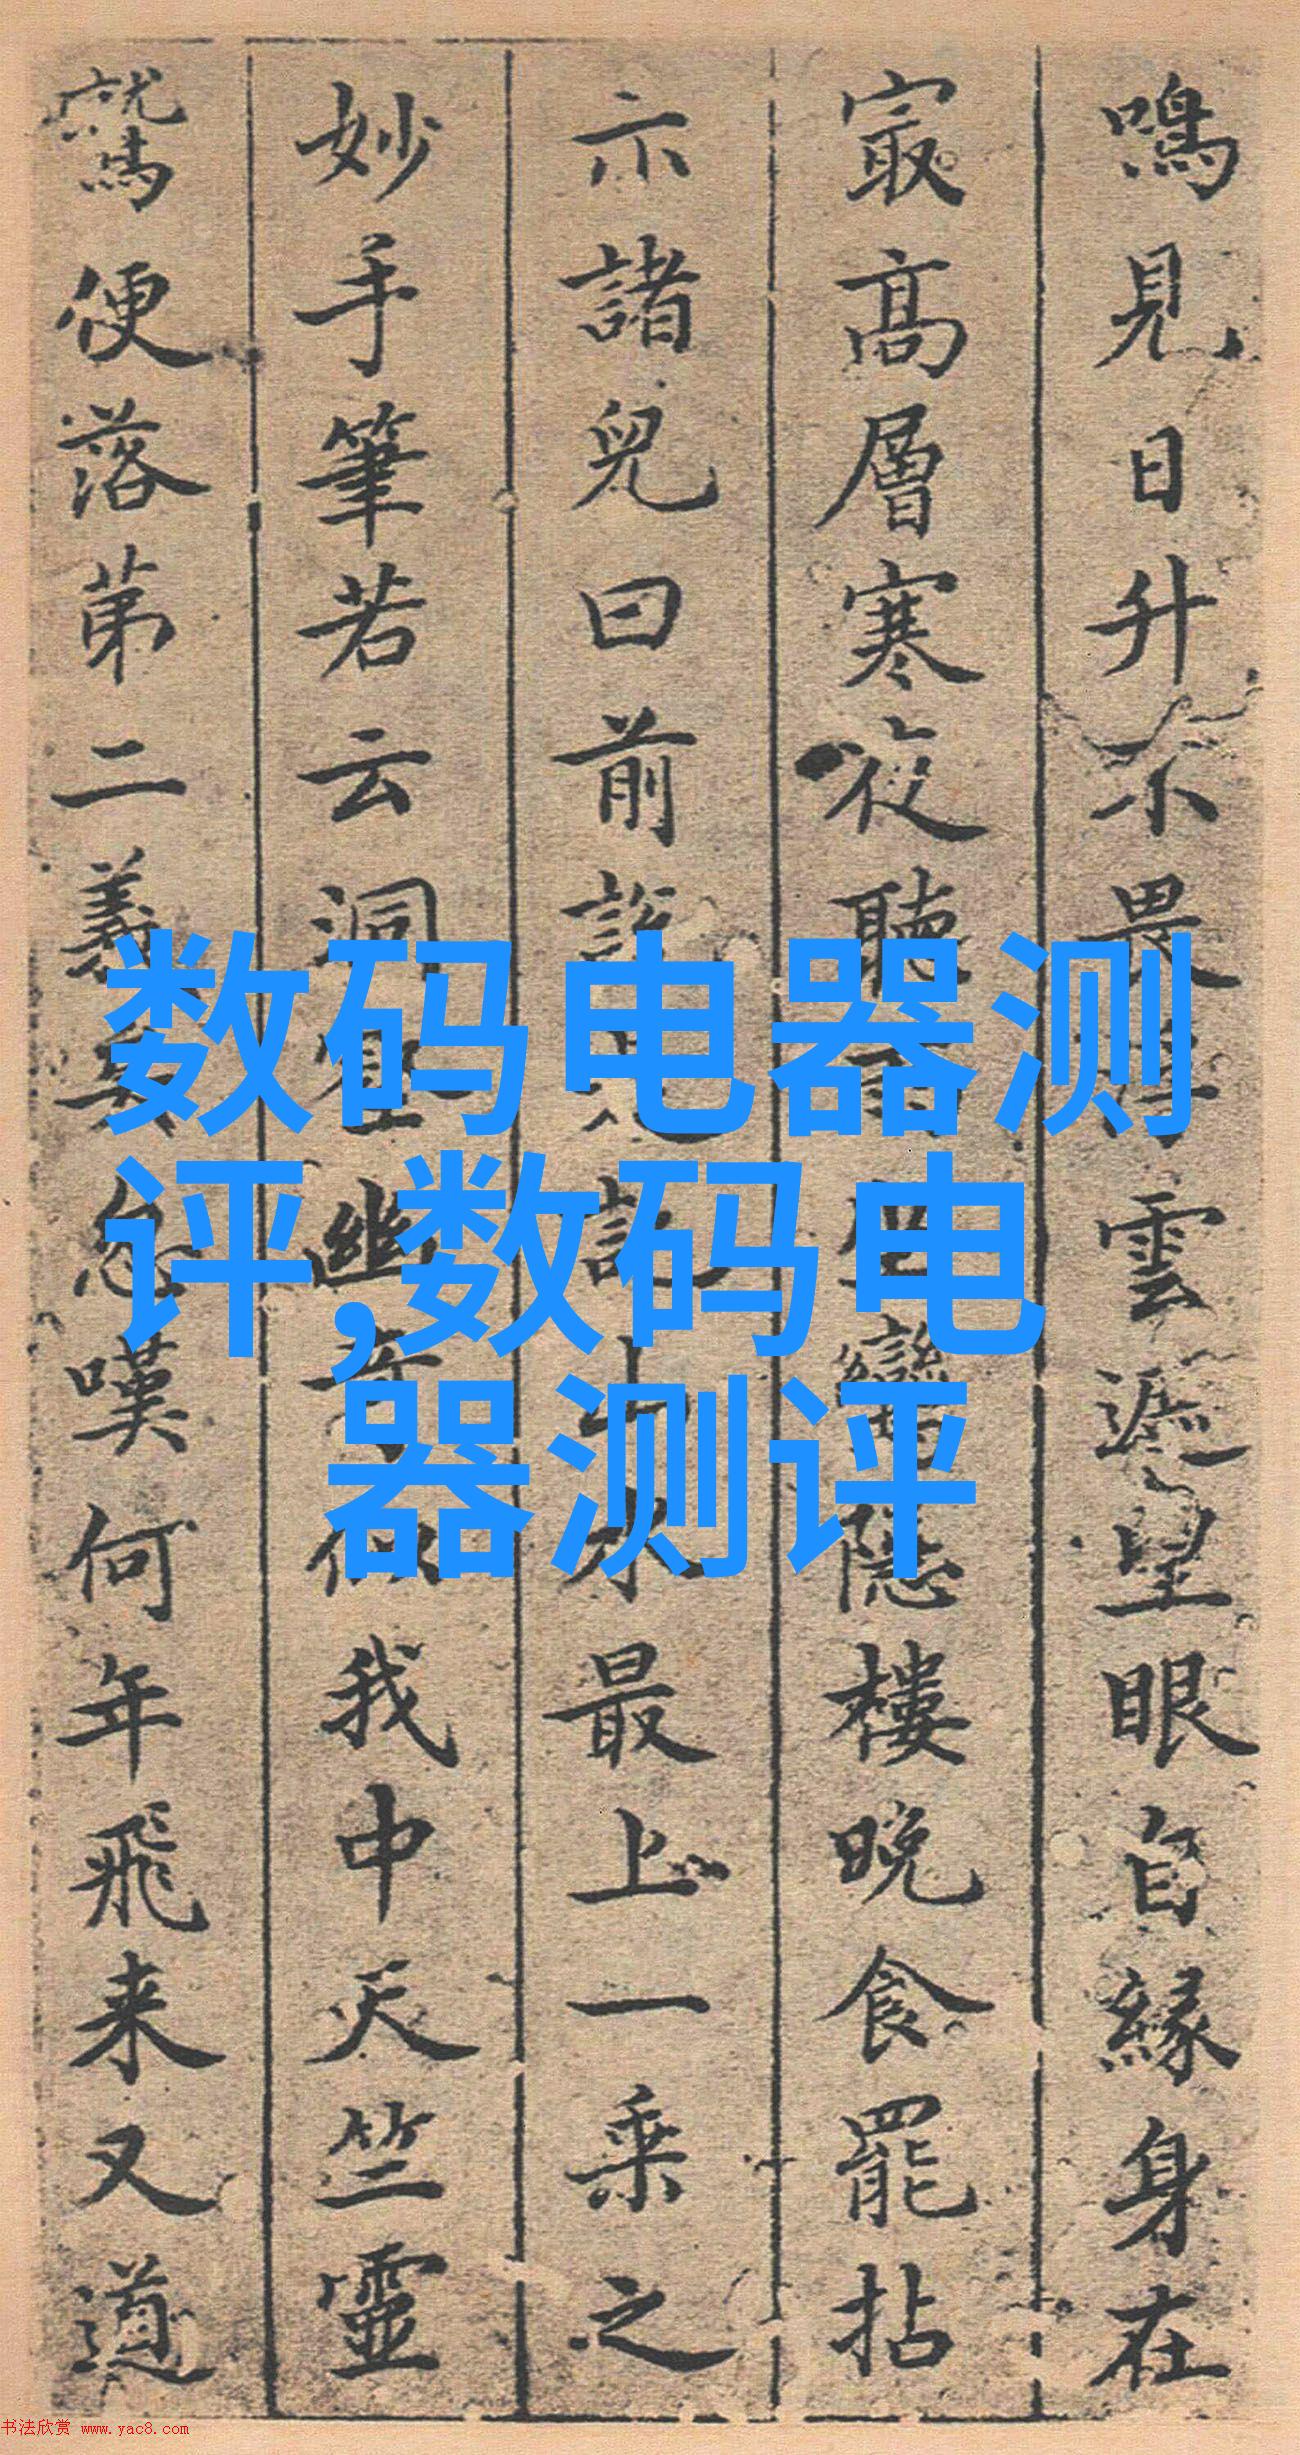 鳴見日升不畏浮雲遮望眼自緣身在
冣高層寒夜聽
隱樓晚食罷拈
示諸兒曰前
最上一乗之
妙手筆若云洞
我中天竺靈
鷲便落苐二義
嘆何年飛来又道
数码电器测
评,数码电
器测评
书法欣赏 www.yac8.com